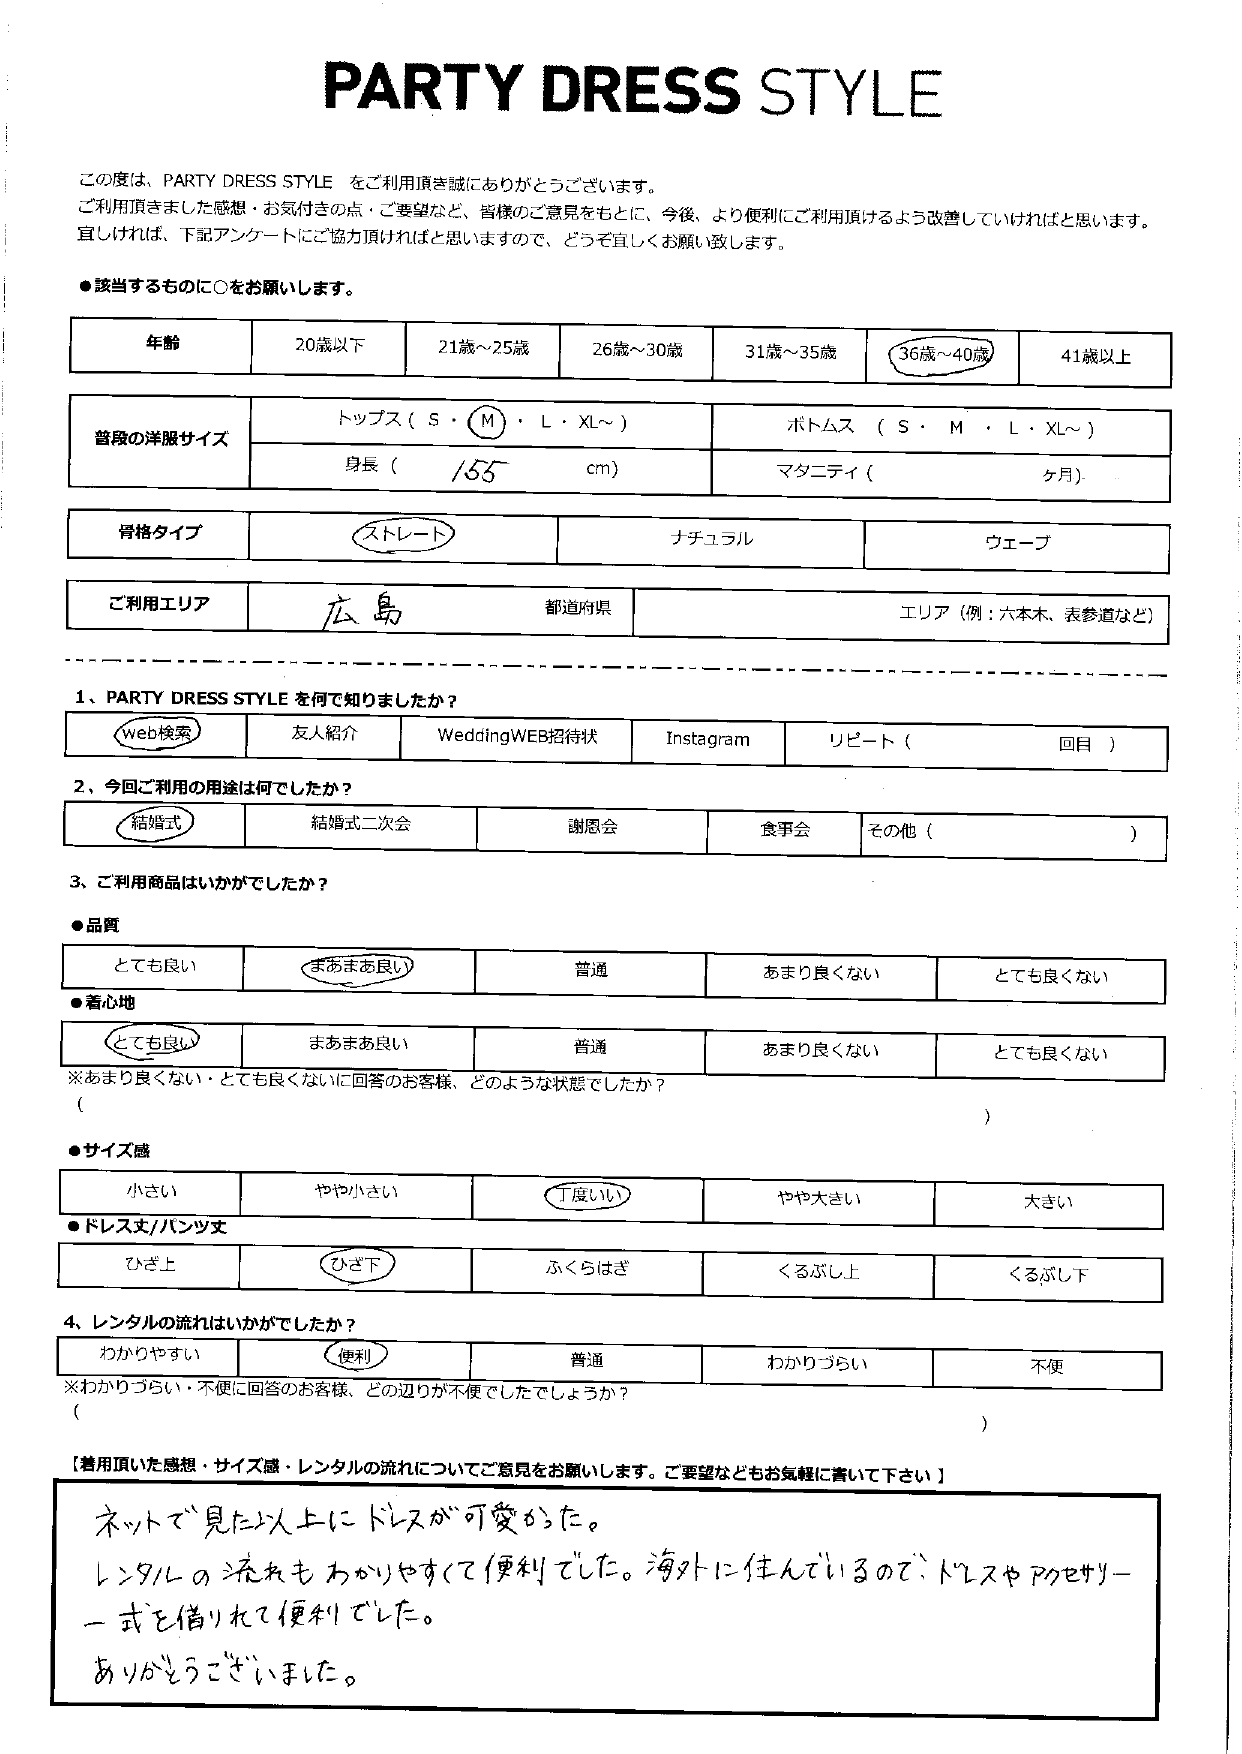 PARTY DRESS STYLE
この度は、PARTY DRESS STYLE をご利用頂き誠にありがとうございます。
ご利用頂きました感想・お気付きの点・ご要望など、皆様のご意見をもとに、今後、より便利にご利用頂けるよう改善していければと思います。
宜しければ、下記アンケートにご協力頂ければと思いますので、どうぞ宜しくお願い致します。
●該当するものに○をお願いします。
年齢 20歳以下 21歳～25歳 26歳～30歳 31歳～35歳 36歳～40歳 41歳以上
普段の洋服サイズ トップス ( S ・ M ・ L ・ XL～ ) ボトムス ( S ・ M ・ L ・ XL～ )
身長 ( 155 cm) マタニティ ( ヶ月)
骨格タイプ ストレート ナチュラル ウェーブ
ご利用エリア 広島 都道府県 エリア（例：六本木、表参道など）
1、PARTY DRESS STYLE を何で知りましたか？
web検索 友人紹介 WeddingWEB招待状 Instagram リピート ( 回目 )
2、今回ご利用の用途は何でしたか？
結婚式 結婚式二次会 謝恩会 食事会 その他 ( )
3、ご利用商品はいかがでしたか？
●品質
とても良い まあまあ良い 普通 あまり良くない とても良くない
●着心地
とても良い まあまあ良い 普通 あまり良くない とても良くない
※あまり良くない・とても良くないに回答のお客様、どのような状態でしたか？
( )
●サイズ感
小さい やや小さい 丁度いい やや大きい 大きい
●ドレス丈/パンツ丈
ひざ上 ひざ下 ふくらはぎ くるぶし上 くるぶし下
4、レンタルの流れはいかがでしたか？
わかりやすい 便利 普通 わかりづらい 不便
※わかりづらい・不便に回答のお客様、どの辺りが不便でしたでしょうか？
( )
【着用頂いた感想・サイズ感・レンタルの流れについてご意見をお願いします。ご要望などもお気軽に書いて下さい】
ネットで見た以上にドレスが可愛かった。
レンタルの流れもわかりやすくて便利でした。海外に住んでいるので、ドレスやアクセサリー
一式を借りれて便利でした。
ありがとうございました。